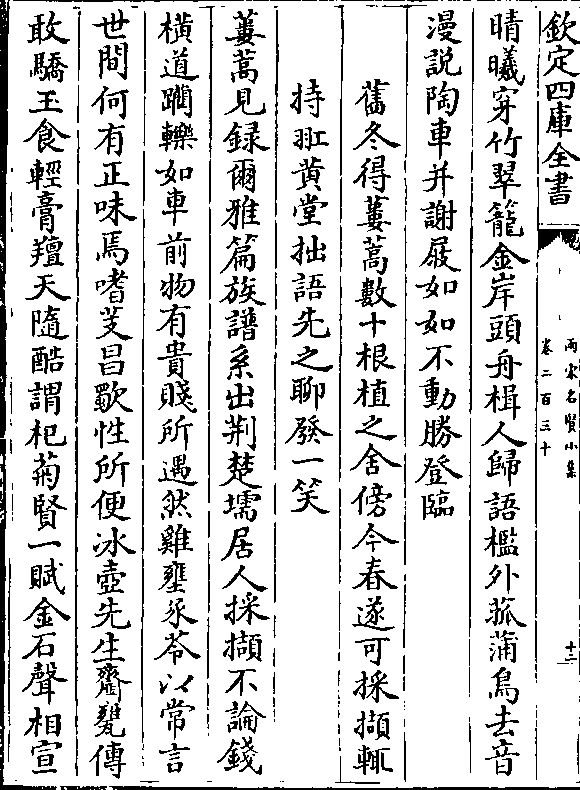 欽定四庫全書
兩宋名賢小集
卷二百三十
十二
晴曦穿竹翠籠金岸頭舟楫人歸語檻外菰蒲鳥去音
漫説陶車并謝屐如如不動勝登臨
舊冬得蔞蒿數十根植之舍傍今春遂可採擷輒
持㧬黄堂拙語先之聊發一笑
蔞蒿見録爾雅篇族譜系出荆楚壖居人採擷不論錢
横道躝轢如車前物有貴賤所遇然雞壅豕苓以常言
世間何有正味焉嗜芰昌歜性所便冰壺先生齏甕傳
敢驕玉食輕膏羶天隨酷謂杞菊賢一賦金石聲相宣